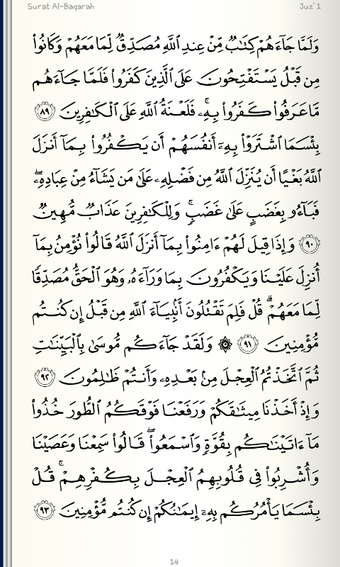 Surat Al-Baqarah
Juz' 1
وَلَمَّا جَآءَهُمْ كِتَٰبٌ مِّنْ عِندِ ٱللَّهِ مُصَدِّقٌ لِّمَا مَعَهُمْ وَكَانُوا۟
مِن قَبْلُ يَسْتَفْتِحُونَ عَلَى ٱلَّذِينَ كَفَرُوا۟ فَلَمَّا جَآءَهُم
مَّا عَرَفُوا۟ كَفَرُوا۟ بِهِۦ ۚ فَلَعْنَةُ ٱللَّهِ عَلَى ٱلْكَٰفِرِينَ ٨٩
بِئْسَمَا ٱشْتَرَوْا۟ بِهِۦٓ أَنفُسَهُمْ أَن يَكْفُرُوا۟ بِمَآ أَنزَلَ
ٱللَّهُ بَغْيًا أَن يُنَزِّلَ ٱللَّهُ مِن فَضْلِهِۦ عَلَىٰ مَن يَشَآءُ مِنْ عِبَادِهِۦ ۖ
فَبَآءُو بِغَضَبٍ عَلَىٰ غَضَبٍ ۚ وَلِلْكَٰفِرِينَ عَذَابٌ مُّهِينٌ
٩٠ وَإِذَا قِيلَ لَهُمْ ءَامِنُوا۟ بِمَآ أَنزَلَ ٱللَّهُ قَالُوا۟ نُؤْمِنُ بِمَآ
أُنزِلَ عَلَيْنَا وَيَكْفُرُونَ بِمَا وَرَآءَهُۥ وَهُوَ ٱلْحَقُّ مُصَدِّقًا
لِّمَا مَعَهُمْ ۗ قُلْ فَلِمَ تَقْتُلُونَ أَنۢبِيَآءَ ٱللَّهِ مِن قَبْلُ إِن كُنتُم
مُّؤْمِنِينَ ٩١ ۞ وَلَقَدْ جَآءَكُم مُّوسَىٰ بِٱلْبَيِّنَٰتِ
ثُمَّ ٱتَّخَذْتُمُ ٱلْعِجْلَ مِنۢ بَعْدِهِۦ وَأَنتُمْ ظَٰلِمُونَ ٩٢
وَإِذْ أَخَذْنَا مِيثَٰقَكُمْ وَرَفَعْنَا فَوْقَكُمُ ٱلطُّورَ خُذُوا۟
مَآ ءَاتَيْنَٰكُم بِقُوَّةٍ وَٱسْمَعُوا۟ ۖ قَالُوا۟ سَمِعْنَا وَعَصَيْنَا
وَأُشْرِبُوا۟ فِى قُلُوبِهِمُ ٱلْعِجْلَ بِكُفْرِهِمْ ۚ قُلْ
بِئْسَمَا يَأْمُرُكُم بِهِۦٓ إِيمَٰنُكُمْ إِن كُنتُم مُّؤْمِنِينَ ٩٣
14